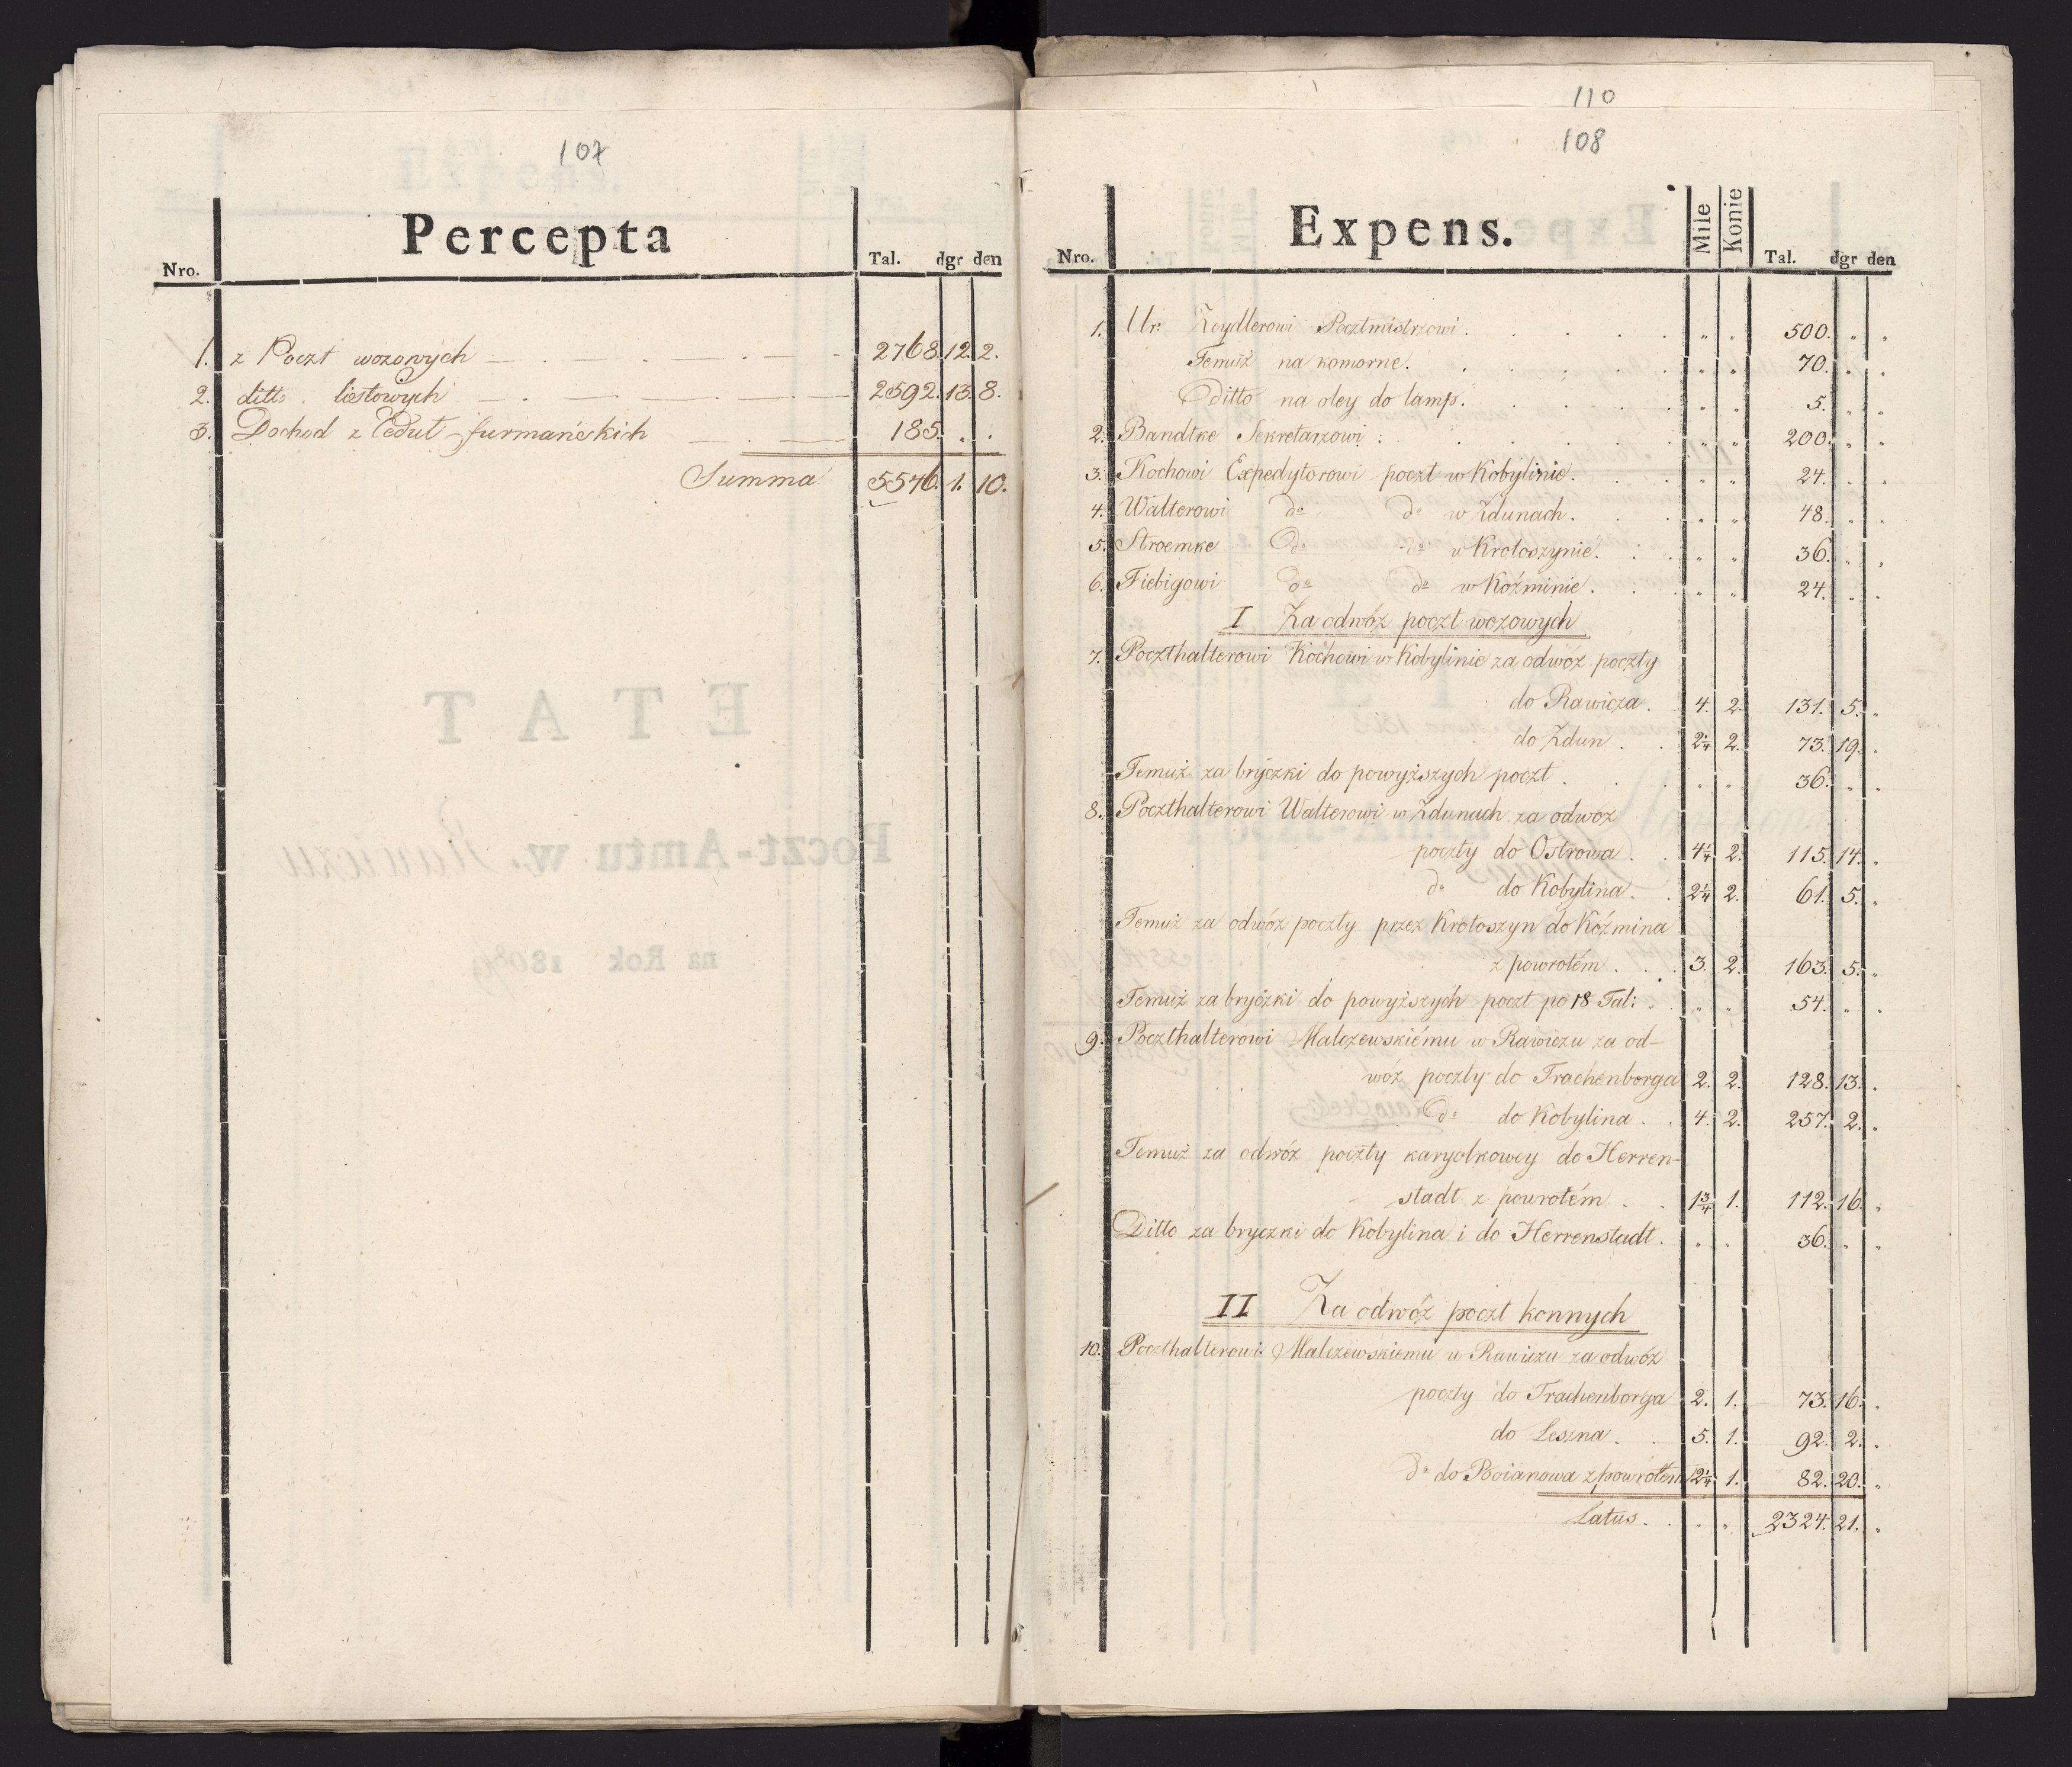 107
Percepta
Nro. Tal. dgr den
1. z Poczt wozowych 2768. 12. 2.
2. ditto listowych 2592. 13. 8.
3. Dochod z Cedut furmańskich 185. . .
Summa 5546. 1. 10.
110
108
Expens.
Nro. Mile Konie Tal. dgr den
1. Ur: Zeydlerowi Pocztmistrzowi . . . . „ „ 500. „ „
Temuż na komorne. . . . . „ „ 70. „ „
Ditto na oley do lamp. . . . . „ „ 5. „ „
2. Bandtke Sekretarzowi . . . . „ „ 200. „ „
3. Kochowi Expedytorowi poczt w Kobylinie. . . „ „ 24. „ „
4. Walterowi do do w Zdunach. . . „ „ 48. „ „
5. Stroemke do do w Krotoszynie. . . „ „ 36. „ „
6. Fiebigowi do do w Koźminie . . . „ „ 24. „ „
I Za odwóz poczt wozowych
7. Poczthalterowi Kochowi w Kobylinie za odwóz poczty
do Rawicza . . 4. 2. 131. 5. „
do Zdun . . 2¼ 2. 73. 19. „
Temuż za bryczki do powyższych poczt . . . „ „ 36. „ „
8. Poczthalterowi Walterowi w Zdunach za odwóz
poczty do Ostrowa . . 4¼ 2. 115. 14. „
do do Kobylina . . 2¼ 2. 61. 5. „
Temuż za odwóz poczty przez Krotoszyn do Koźmina
z powrotém . . . 3. 2. 163. 5. „
Temuż za bryczki do powyższych poczt po 18 Tal: . . „ „ 54. „ „
9. Poczthalterowi Malczewskiému w Rawiczu za od-
wóz poczty do Trachenborga 2. 2. 128. 13. „
do do Kobylina . . 4. 2. 257. 2. „
Temuż za odwóz poczty karyolkowey do Herren-
stadt z powrotém . . 1¾ 1. 112. 16. „
Ditto za bryczki do Kobylina i do Herrenstadt . „ „ 36. „ „
II Za odwóz poczt konnych
10. Poczthalterowi Malczewskiemu w Rawiczu za odwóz
poczty do Trachenborga 2. 1. 73. 16. „
do Leszna . . 5. 1. 92. 2. „
do do Boianowa z powrotem 2¼ 1. 82. 20. „
Latus . . „ „ 2324. 21. „